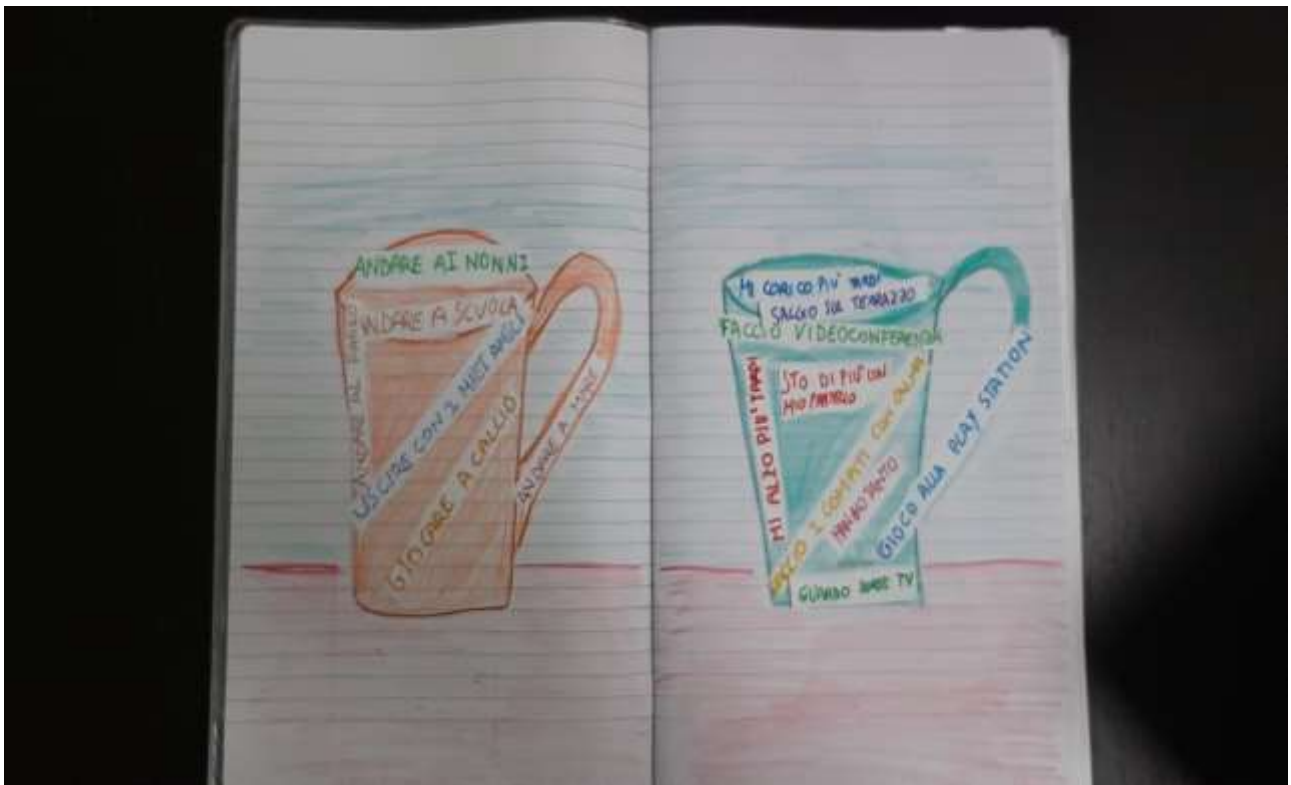 ANDARE AI NONNI
ANDARE A SCUOLA
ANDARE AL
USCIRE CON I MIEI AMICI
GIOCARE A CALCIO
ANDARE A
MI CORICO PIU' TARDI
SALGO SUL TERRAZZO
FACCIO VIDEOCONFERENZA
MI ALZO PIU' TARDI
STO DI PIÙ CON
MIO FRATELLO
FACCIO I COMPITI CON CALMA
MANGIO TANTO
GIOCO ALLA PLAY STATION
GUARDO TV